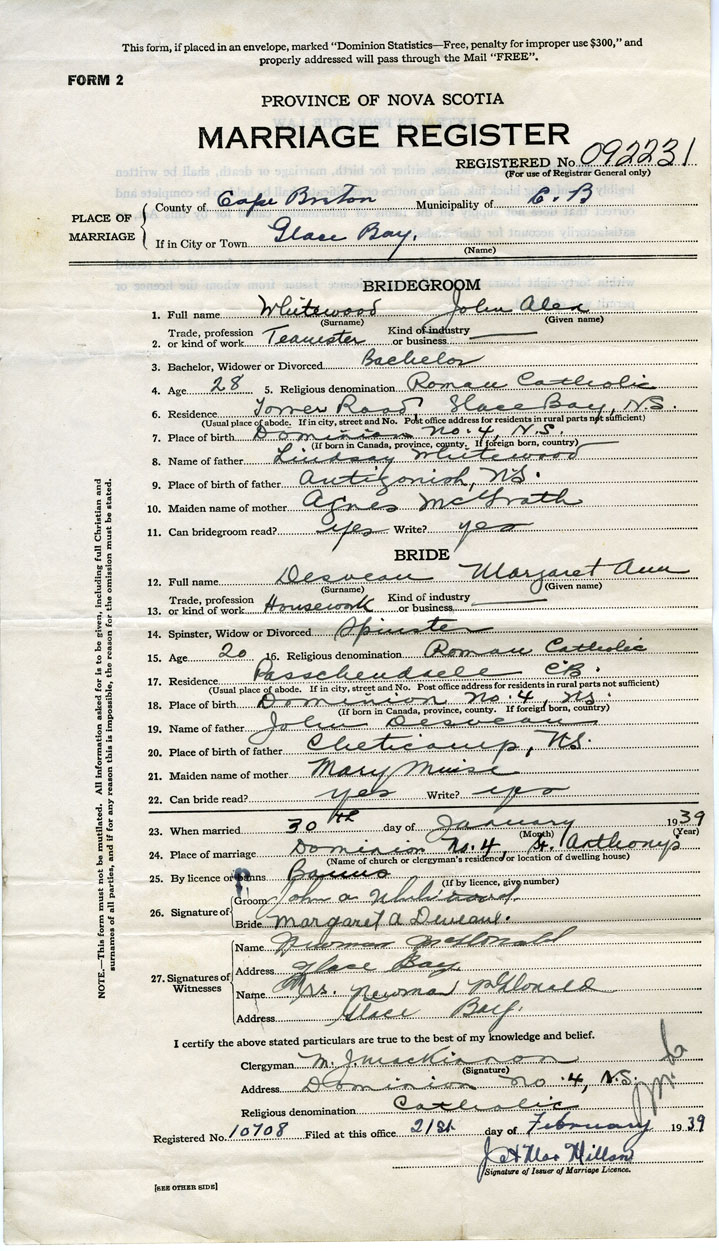 This form, if placed in an envelope, marked "Dominion Statistics—Free, penalty for improper use $300," and
properly addressed will pass through the Mail "FREE".
FORM 2
PROVINCE OF NOVA SCOTIA
MARRIAGE REGISTER
REGISTERED No. 092231
(For use of Registrar General only)
PLACE OF MARRIAGE
County of Cape Breton Municipality of C. B
If in City or Town Glace Bay.
(Name)
BRIDEGROOM
1. Full name Whitewood John Alex
(Surname) (Given name)
2. Trade, profession or kind of work Teamster Kind of industry or business
3. Bachelor, Widower or Divorced Bachelor
4. Age 28 5. Religious denomination Roman Catholic
6. Residence Tower Road, Glace Bay, N.S.
(Usual place of abode. If in city, street and No. Post office address for residents in rural parts not sufficient)
7. Place of birth Dominion No. 4, N.S.
(If born in Canada, province, county. If foreign born, country)
8. Name of father Lindsay Whitewood
9. Place of birth of father Antigonish, N.S.
10. Maiden name of mother Agnes McGrath
11. Can bridegroom read? yes Write? yes
BRIDE
12. Full name Desveau Margaret Ann
(Surname) (Given name)
13. Trade, profession or kind of work Housework Kind of industry or business
14. Spinster, Widow or Divorced Spinster
15. Age 20 16. Religious denomination Roman Catholic
17. Residence Passchendaele C.B.
(Usual place of abode. If in city, street and No. Post office address for residents in rural parts not sufficient)
18. Place of birth Dominion No. 4, N.S.
(If born in Canada, province, county. If foreign born, country)
19. Name of father John Desveau
20. Place of birth of father Cheticamp, N.S.
21. Maiden name of mother Mary Muise
22. Can bride read? yes Write? yes
23. When married 30th day of January 1939
(Month) (Year)
24. Place of marriage Dominion No. 4, St. Anthony's
(Name of church or clergyman's residence or location of dwelling house)
25. By licence or banns Banns
(If by licence, give number)
26. Signature of
Groom John A Whitewood
Bride Margaret A Deveaux.
27. Signatures of Witnesses
Name Newman McDonald
Address Glace Bay
Name Mrs. Newman McDonald
Address Glace Bay.
I certify the above stated particulars are true to the best of my knowledge and belief.
Clergyman M. J. MacKinnon
(Signature)
Address Dominion No. 4, N.S.
Religious denomination Catholic
Registered No. 10708 Filed at this office 21st day of February 1939
J A MacMillan
Signature of Issuer of Marriage Licence.
[SEE OTHER SIDE]
NOTE.—This form must not be mutilated. All information asked for is to be given, including full Christian and
surnames of all parties, and if for any reason this is impossible, the reason for the omission must be stated.